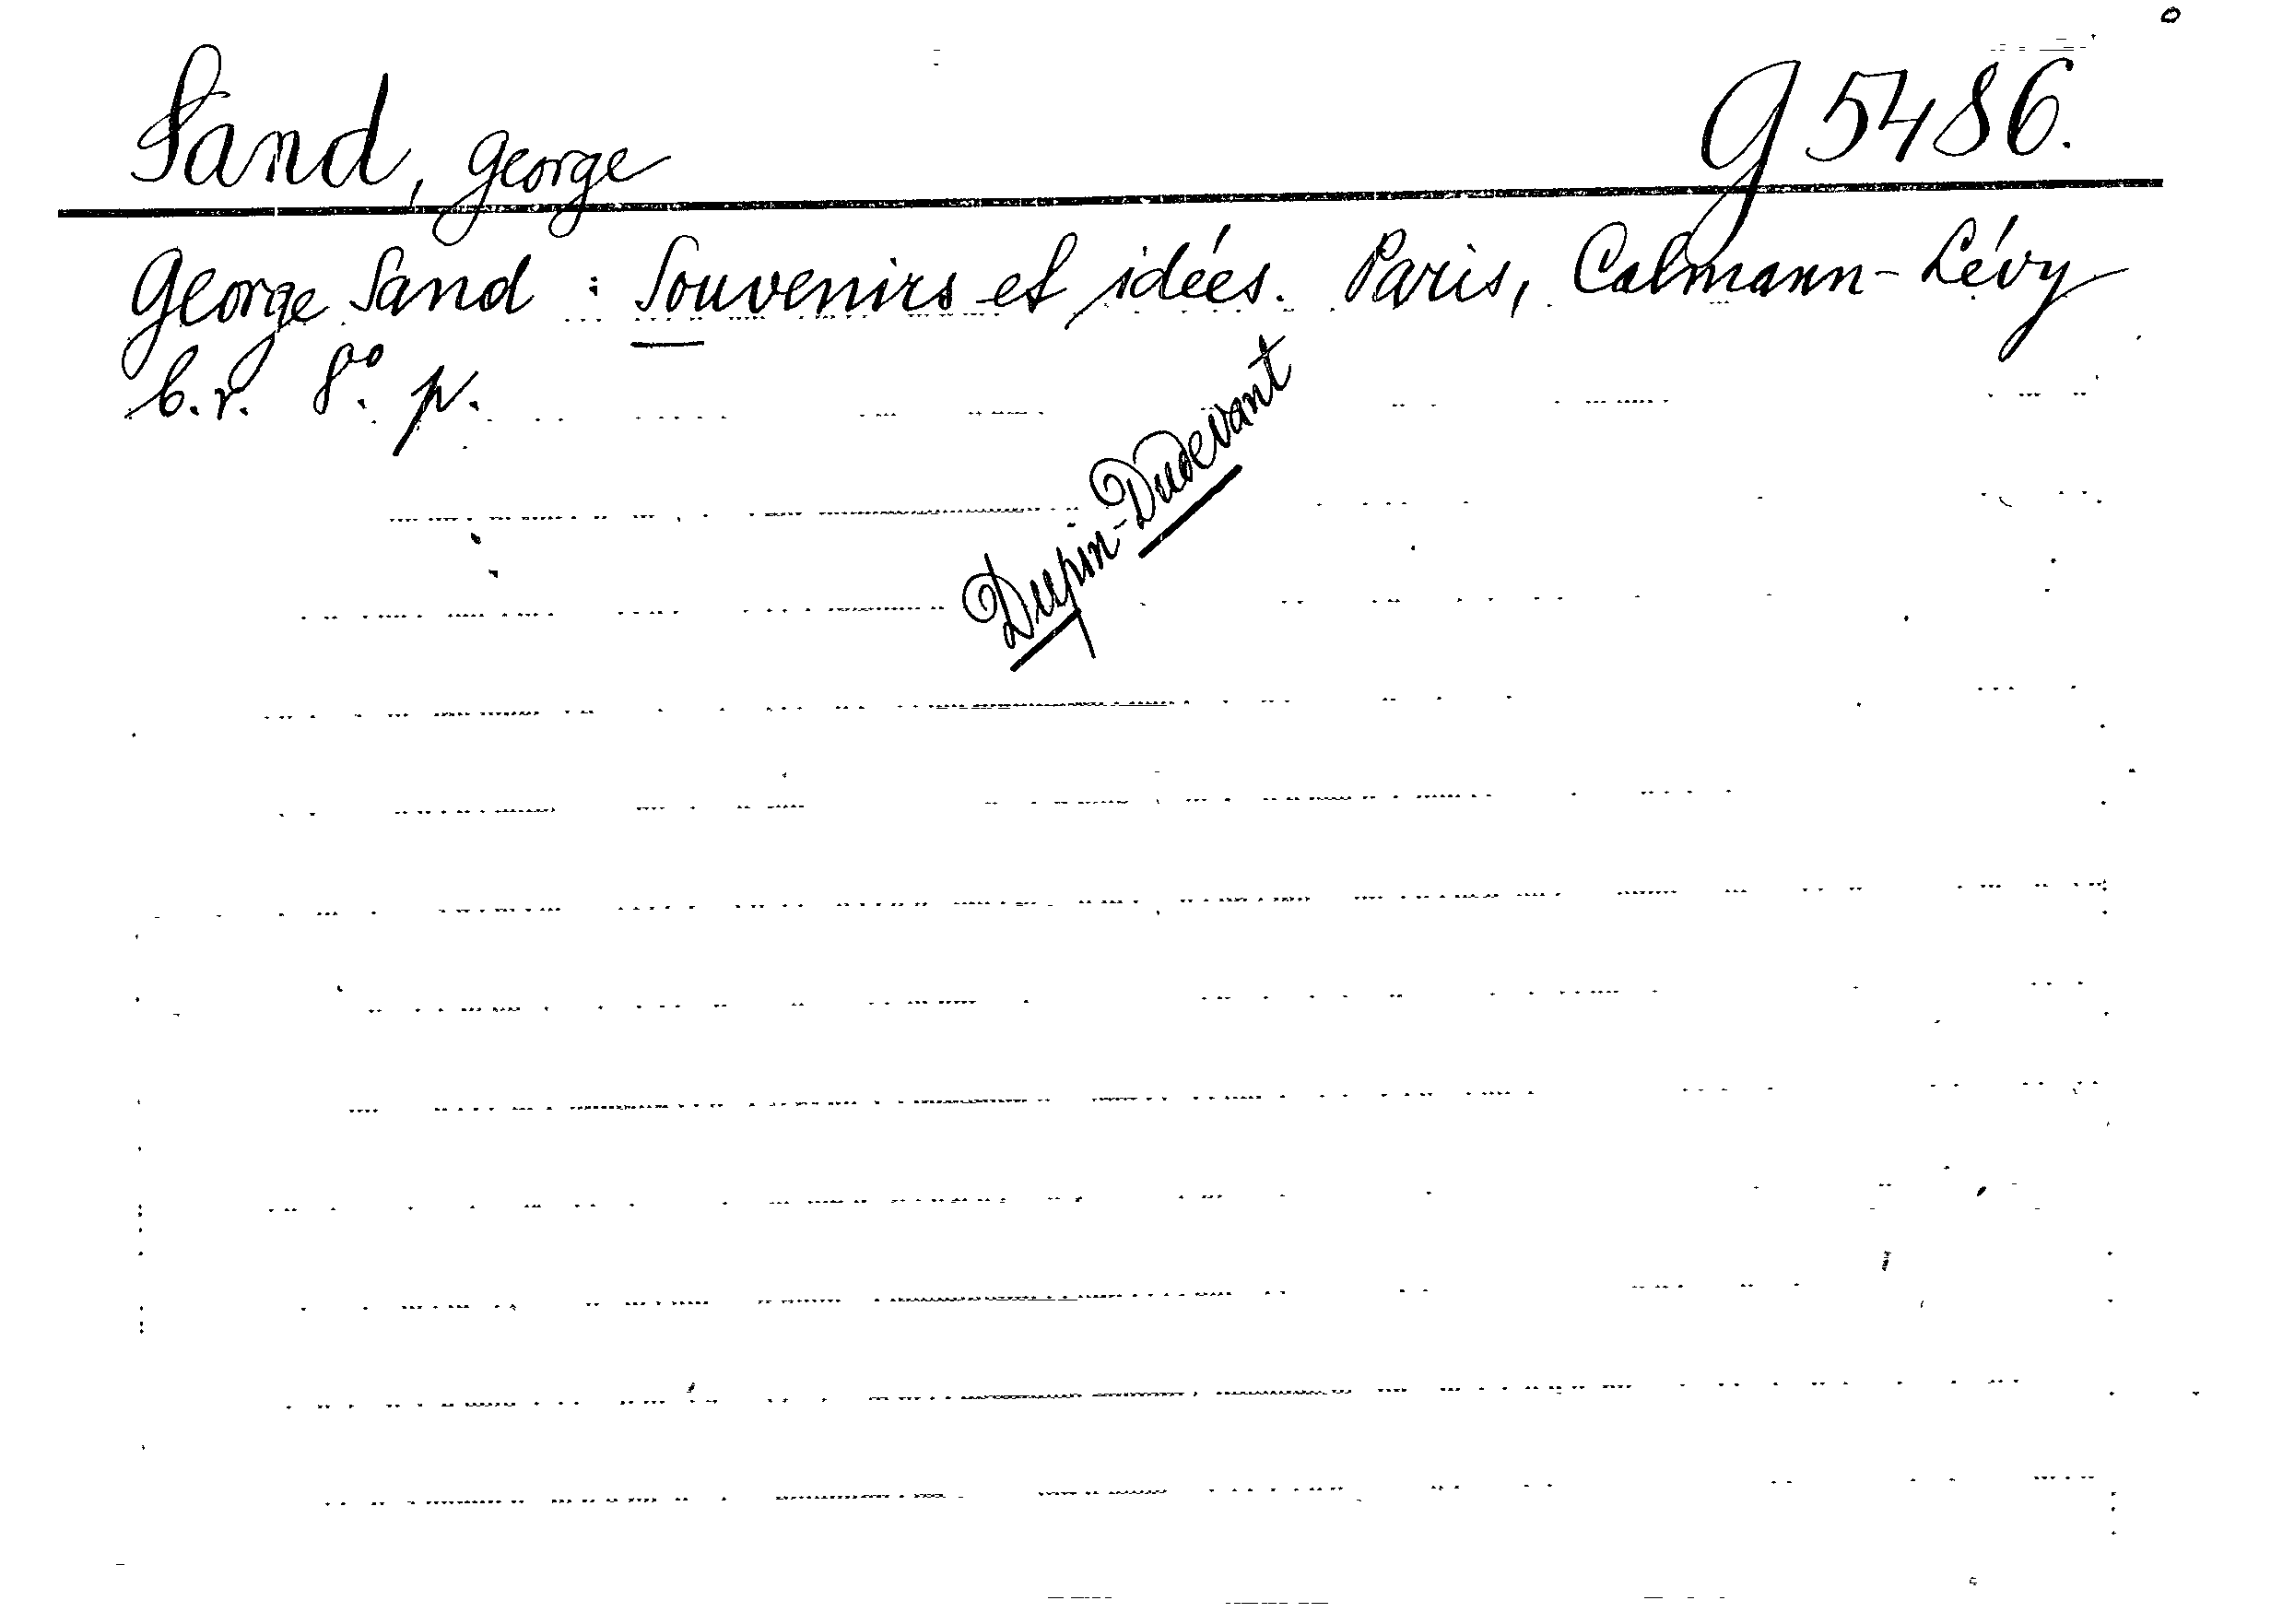 Sand, George
G 5486.
George Sand : Souvenirs et idées. Paris, Calmann-Lévy
b.r. 8°. p.
Dupin-Dudevant